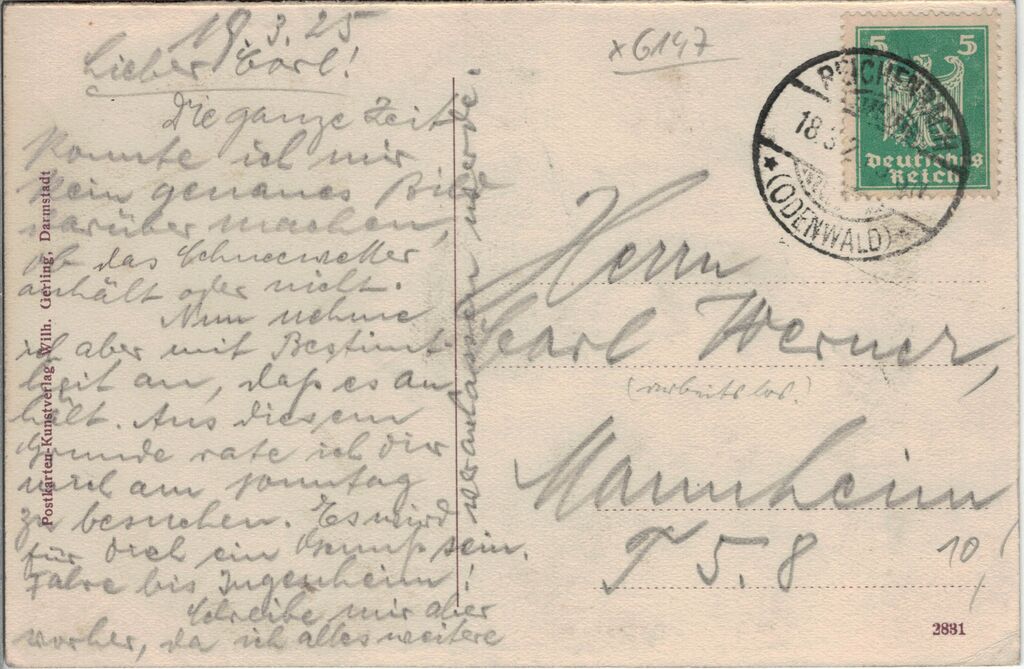 18.3.25
Lieber Carl!
Die ganze Zeit
konnte ich mir
kein genaues Bild
darüber machen,
ob das Schneewetter
anhält oder nicht.
Nun nehme
ich aber mit Bestimt-
heit an, daß es an
hält. Aus diesem
Grunde rate ich dir
mich am Sonntag
zu besuchen. Es wird
für Dich ein Genuß sein.
Fahre bis Jugenheim!
Schreibe mir aber
vorher, da ich alles weitere
veranlassen werde.
Postkarten-Kunstverlag Wilh. Gerling, Darmstadt
x6147
5 5
Deutsches
Reich
REICHENBACH
18.3.2
(ODENWALD)
Herrn
Carl Werner,
(arbeitslos!)
Mannheim
T 5. 8
10
2831